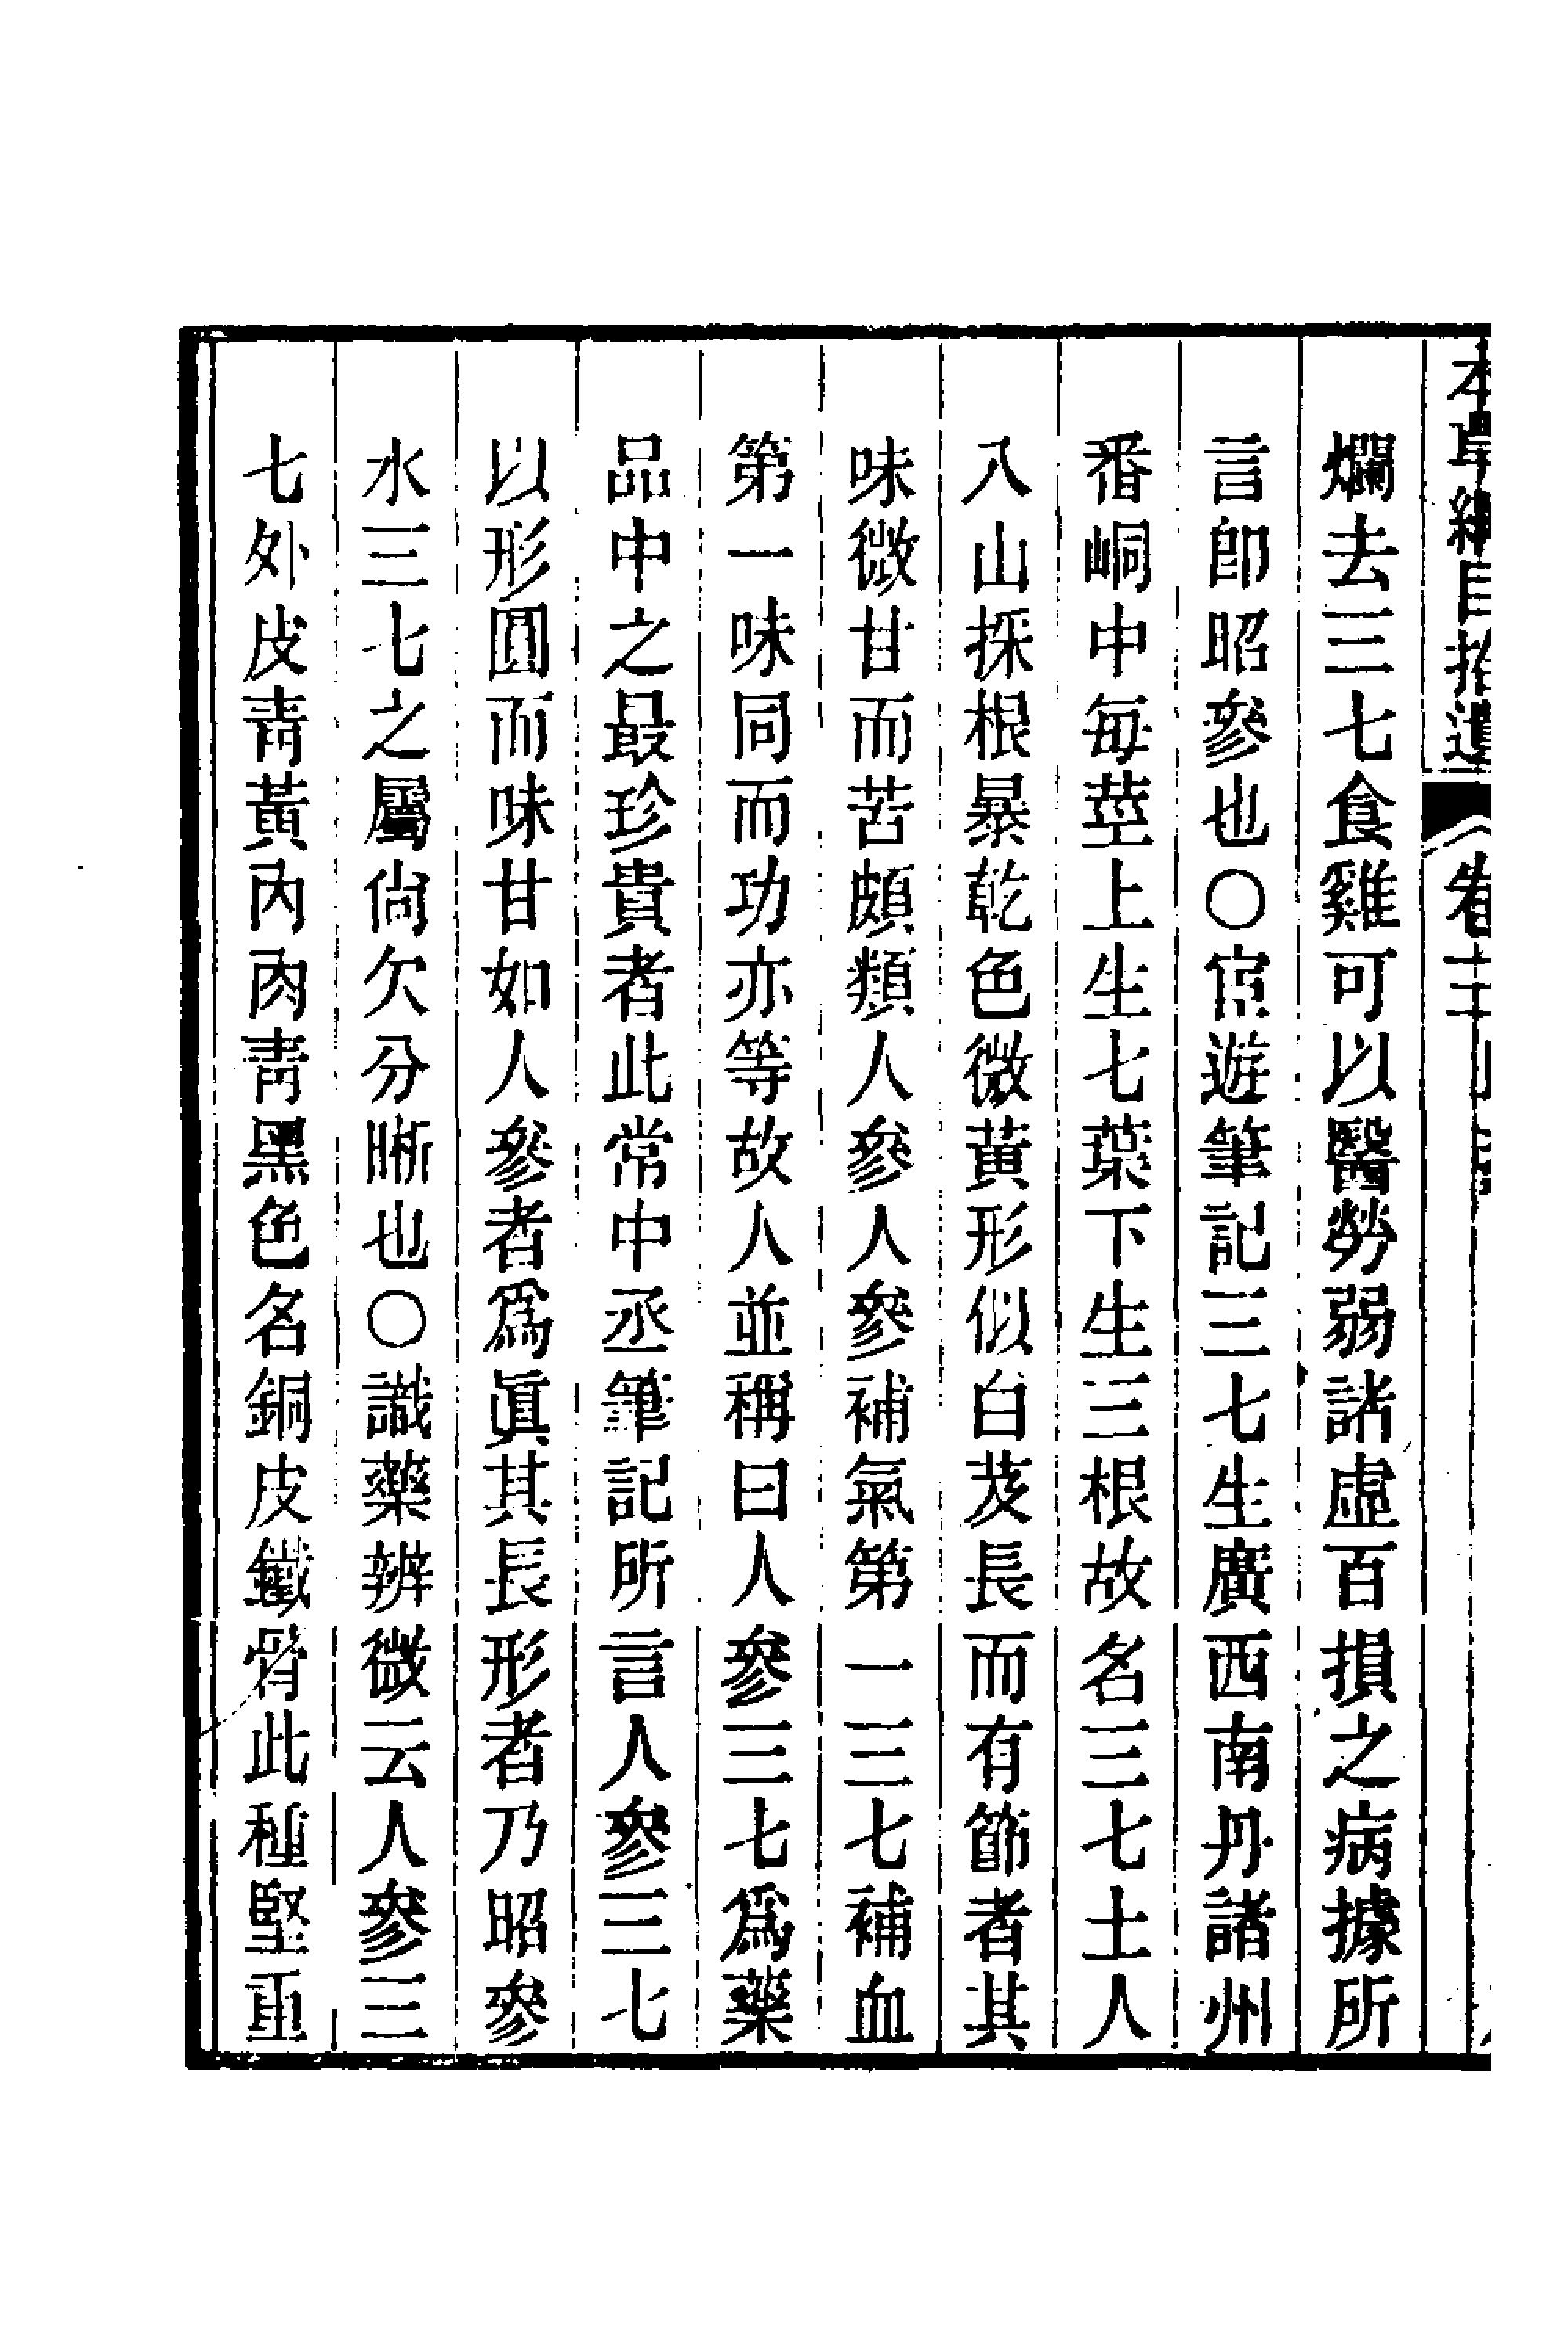 本草綱目拾遺 卷三
爛去三七食雞可以醫勞弱諸虛百損之病據所
言卽昭參也○宦遊筆記三七生廣西南丹諸州
番峒中每莖上生七葉下生三根故名三七土人
入山採根暴乾色微黃形似白芨長而有節者其
味微甘而苦頗類人參人參補氣第一三七補血
第一味同而功亦等故人並稱曰人參三七爲藥
品中之最珍貴者此常中丞筆記所言人參三七
以形圓而味甘如人參者爲眞其長形者乃昭參
水三七之屬尙欠分晣也○識藥辨微云人參三
七外皮青黃內肉青黑色名銅皮鐵骨此種堅重